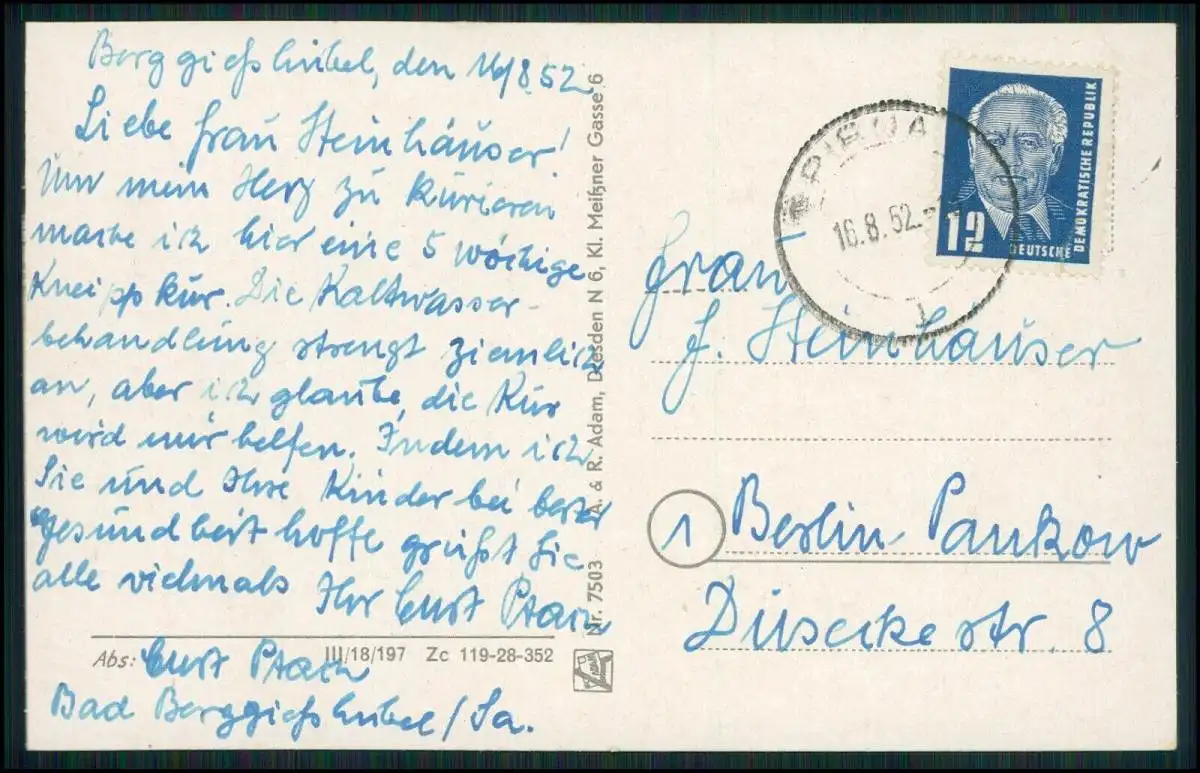 Berggießhübel, den 16/8.52
Liebe Frau Steinhäuser!
Um mein Herz zu kurieren
mache ich hier eine 5 wöchige
Kneippkur. Die Kaltwasser-
behandlung strengt ziemlich
an, aber ich glaube, die Kur
wird mir helfen. Indem ich
Sie und Ihre Kinder bei bester
Gesundheit hoffe grüßt Sie
alle vielmals Ihr Curt
Abs: Curt
Bad Berggießhübel/Sa.
III/18/197 Zc 119-28-352
Nr. 7503 A. & R. Adam, Dresden N 6, Kl. Meißner Gasse 6
PIRNA
16.8.52.
12
DEUTSCHE
DEMOKRATISCHE REPUBLIK
Frau
J. Steinhäuser
1 Berlin Pankow
Dusekestr. 8